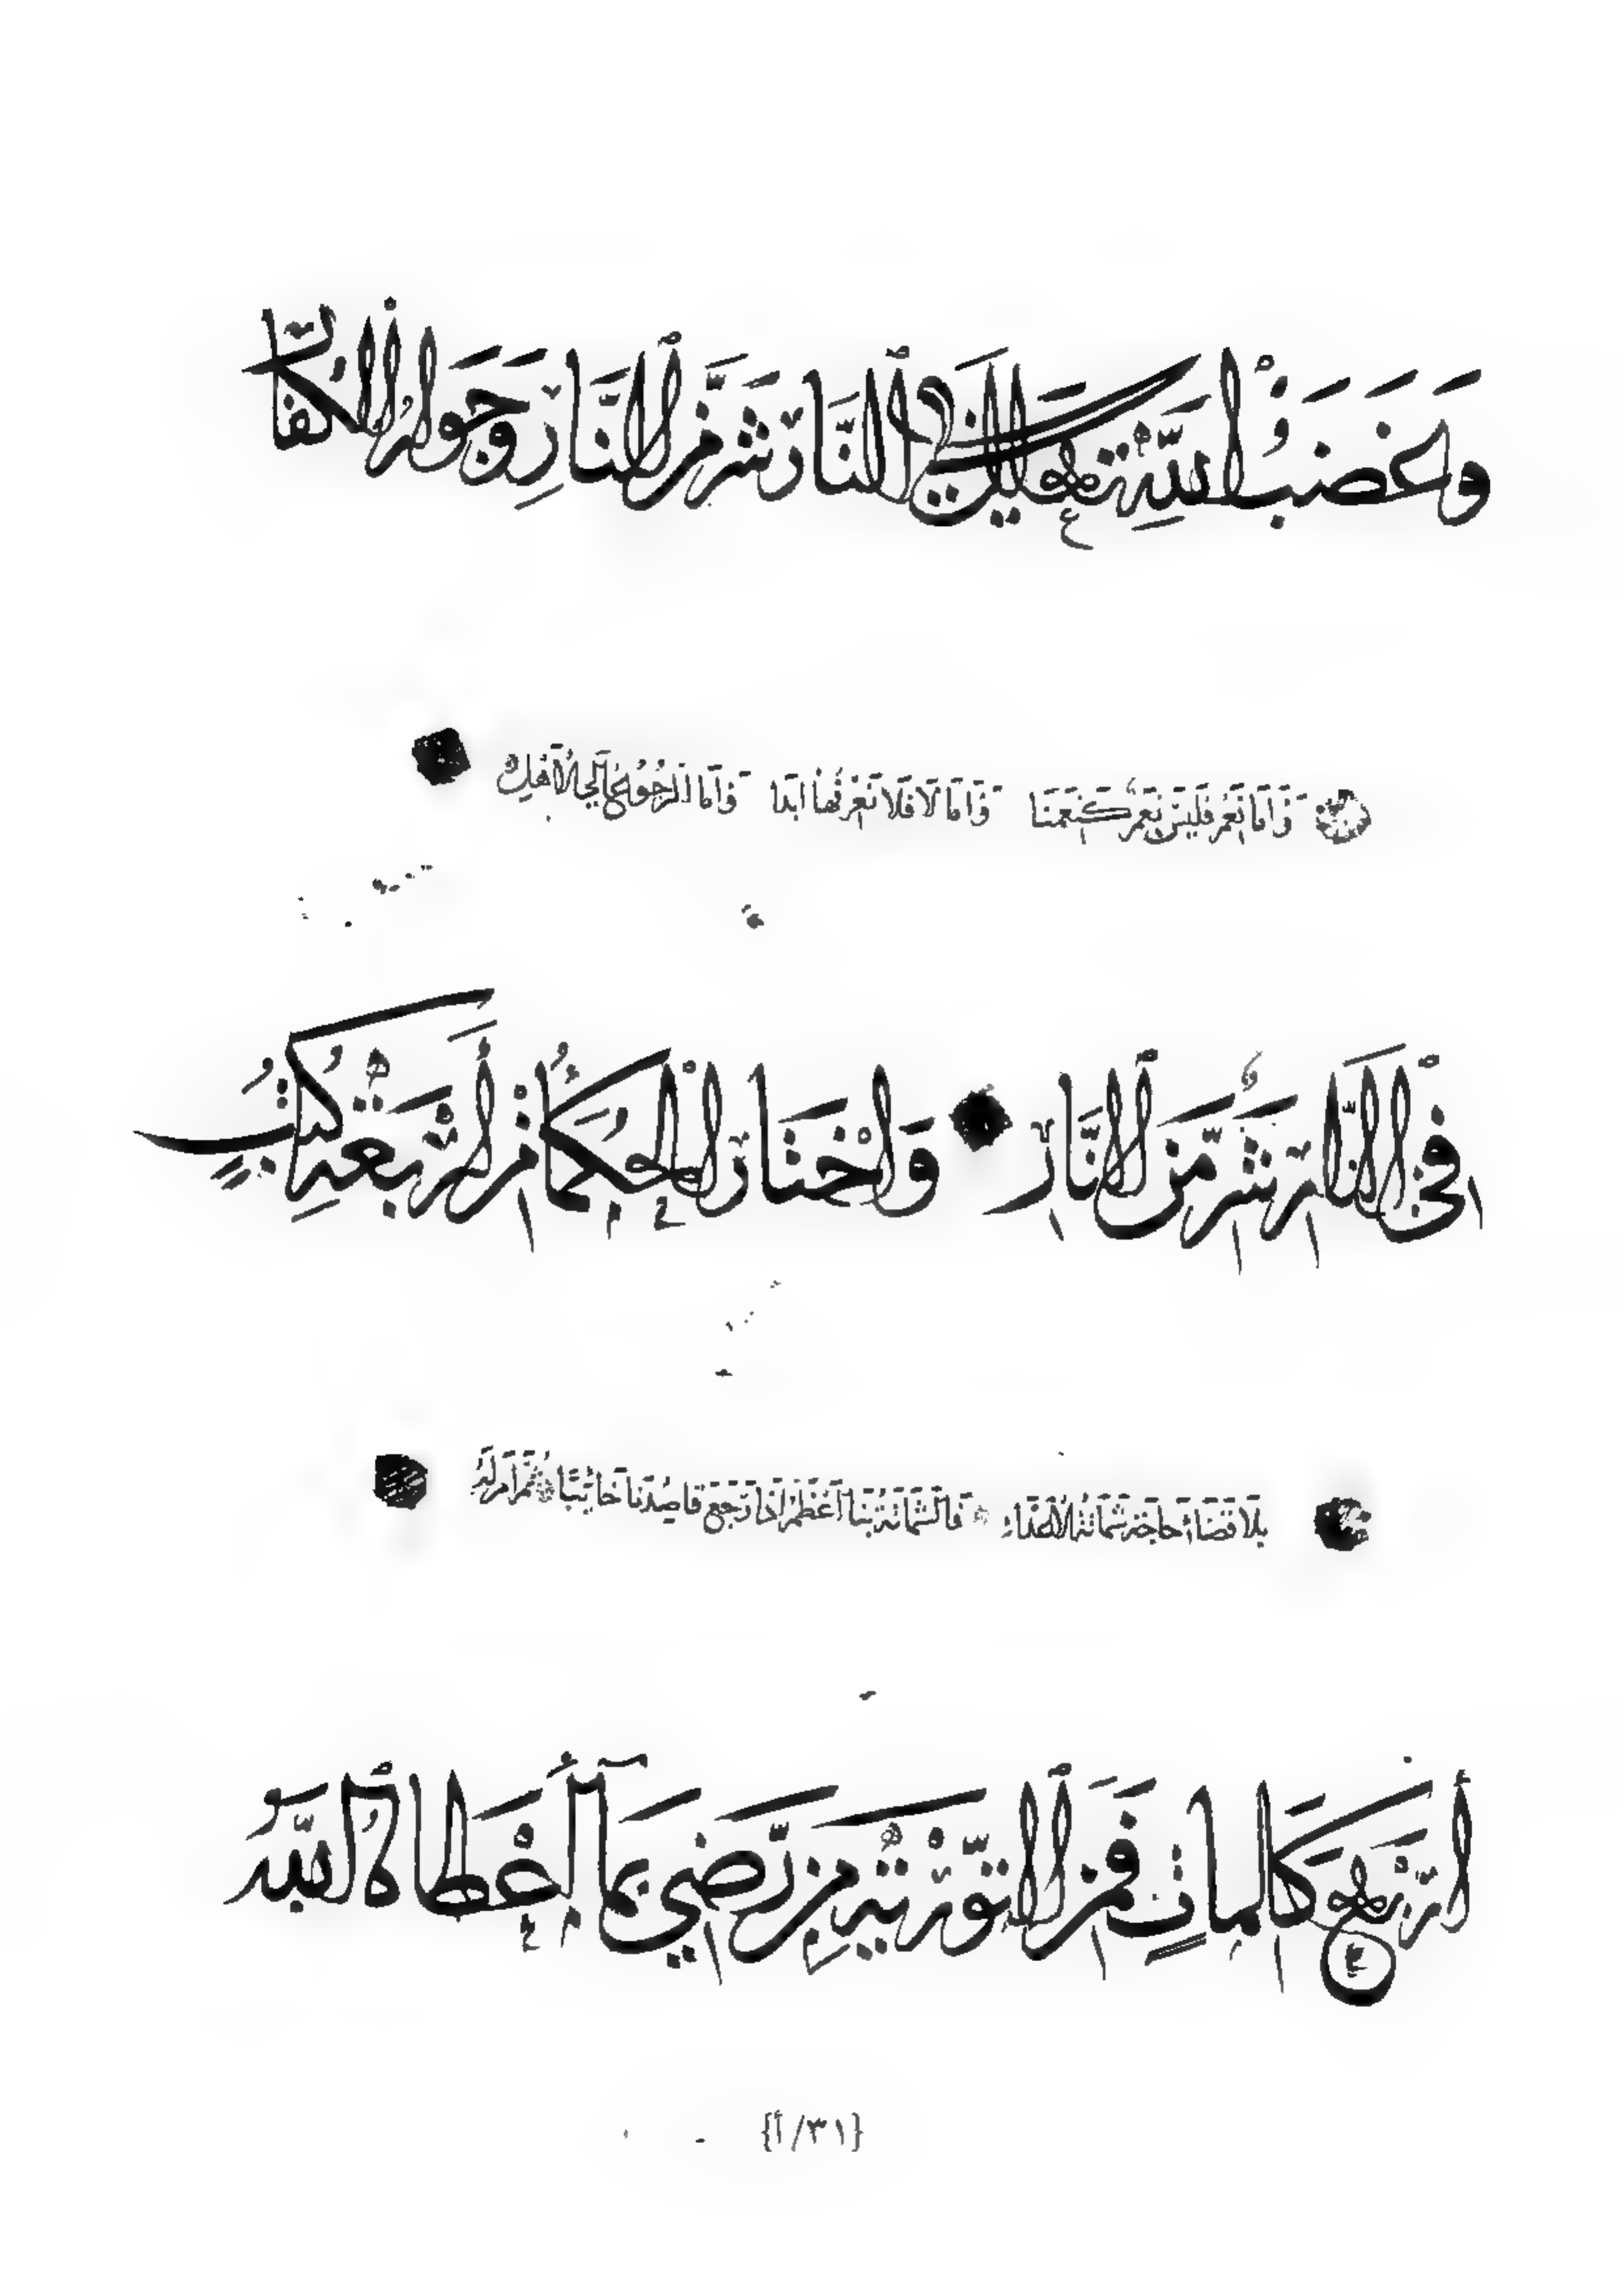 وَغَضَبُ اللّٰهِ تعالى فِي النَّارِ شَرٌّ مِّنَ النَّارِ وَجَوَارُ الْكُفَّارِ
وَأَمَّا نَعَمْ فَلَيْسَ نَعَمْ كَنَعَمِنَا وَأَمَّا لَا فَلَا نَعْرِفُهَا أَبَدًا وَأَمَّا الرُّجُوعُ إِلَى الْأَهْلِ
فِي النَّارِ شَرٌّ مِّنَ النَّارِ وَاخْتَارَ الْحُكَمَاءُ مِنْ أَرْبَعَةِ كُتُبٍ
بِلَا قَضَاءِ حَاجَةٍ شَمَاتَةُ الْأَعْدَاءِ فَالشَّمَاتَةُ بِنَا أَعْظَمُ إِذَا رَجَعَ قَاصِدُنَا خَائِبًا ثُمَّ أَمَرَ لَهُ
أَرْبَعَ كَلِمَاتٍ فَمِنَ التَّوْرٰيةِ مَنْ رَّضِيَ بِمَا أَعْطَاهُ اللّٰهُ
{٣١/أ}